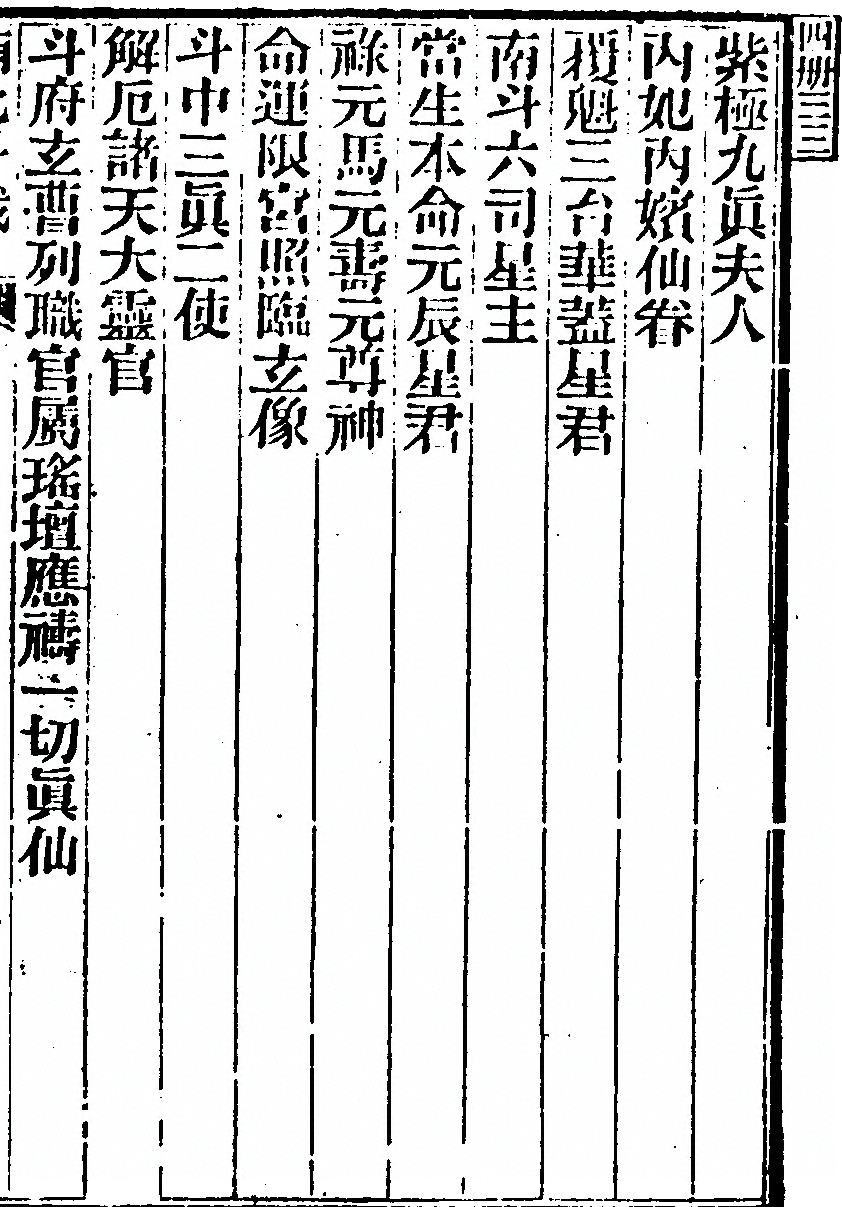 四册三三
紫極九眞夫人
內妃內嬪仙眷
覆魁三台華蓋星君
南斗六司星主
當生本命元辰星君
祿元馬元壽元尊神
命運限宮照臨玄像
斗中三眞二使
解厄諸天大靈官
斗府玄曹列職官屬瑤壇應禱一切眞仙